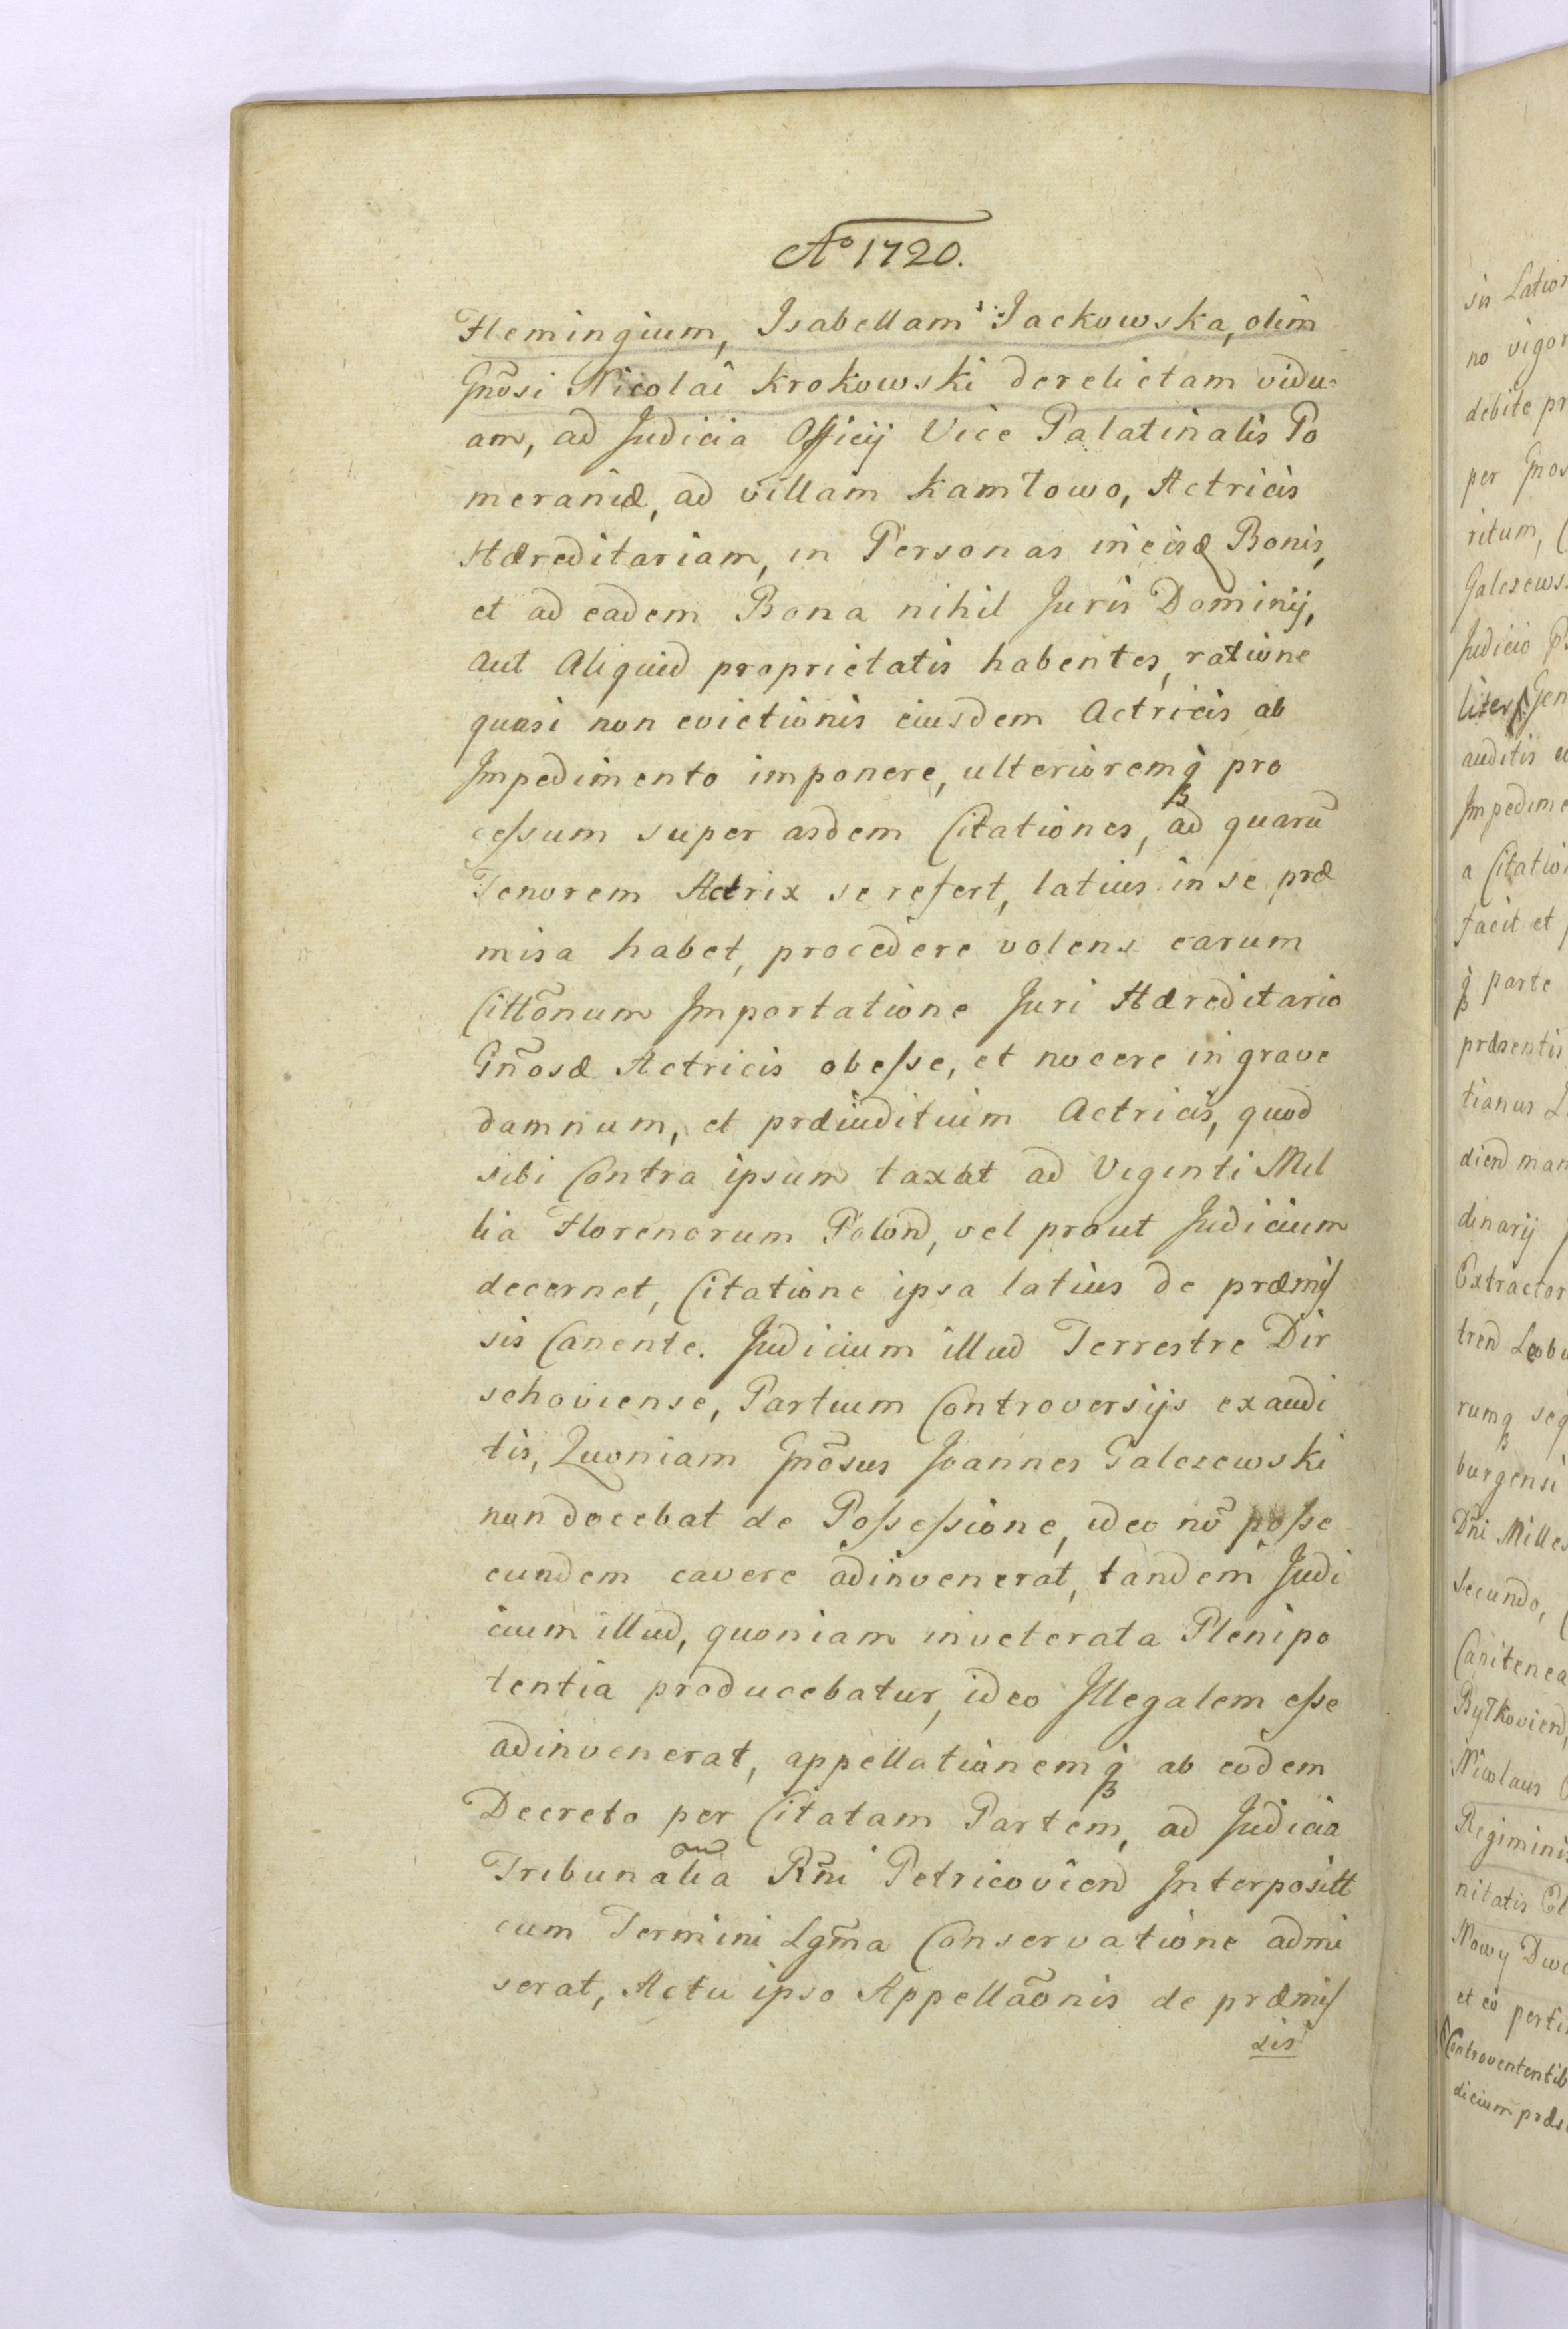 Aº 1720.
Flemingium, Isabellam Jackowska, olim
Gnõsi Nicolai Krokowski derelictam vidu=
am, ad Judicia Officij Vice Palatinalis Po
meraniæ, ad villam Kamtowo, Actricis
Hæreditariam, in Personas in eisq Bonis,
et ad eadem Bona nihil Juris Dominij,
aut Aliquid proprietatis habentes, ratione
quasi non evictionis eiusdem Actricis ab
Impedimento imponere, ulterioremq pro
cessum super asdem Citationes, ad quarũ
Tenorem Actrix se refert, latius in se præ
misa habet, procedere volens earum
Cittõnum Importatione Juri Hæreditario
Gñosæ Actricis obesse, et nocere in grave
damnum, et præiuditium Actricis, quod
sibi Contra ipsum taxat ad Viginti Mil
lia Florenorum Polond, vel prout Judicium
decernet, Citatione ipsa latius de præmis
sis Canente. Judicium illud Terrestre Dir
schoviense, Partium Controversijs exaudi
tis, Quoniam Gnõsus Joannes Galczewski
non docebat de Possessione, ideo nõ posse
eundem cavere adinvenerat, tandem Judi
cium illud, quoniam inveterata Plenipo
tentia producebatur, ideo Illegalem esse
adinvenerat, appellationemq ab eodem
Decreto per Citatam Partem, ad Judicia
Tribunalia Rñi Petricoviend Interposītt
cum Termini Lgm̃a Conservatione admi
serat, Actu ipso Appellaõnis de præmis
sis
sis Lation
no vigor
debite pr
per Gnos
ritum, (
Galczews
Judicio P
liter Gen
auditis e
Impedime
a Citatio
facit et
q parte
præsentis
tianus L
diend man
dinarij
Extractor
trend
rumq seq
burgensi
Dñi Milles
secundo, (
Nicolaus
Regimini
nitatis
Nowy Dwo
et eo perti
Controvententib
dicium præs